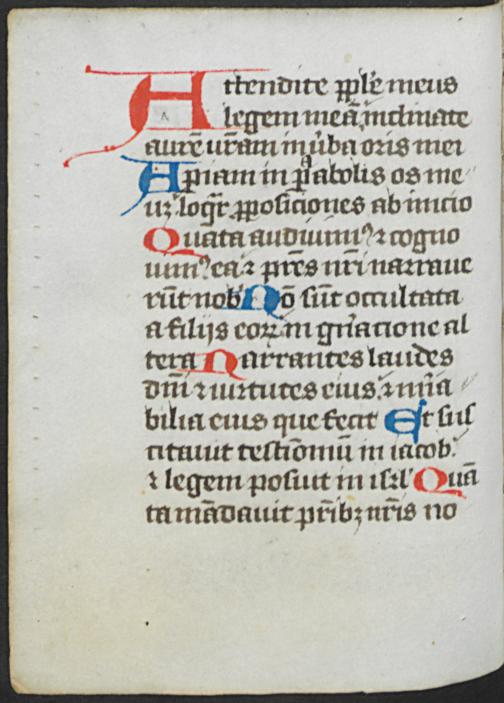 Attendite pple meus
legem meā inclinate
aurē vr̄am in v̄ba oris mei
Apiam in pabolis os me
uꝫ loqr̄ ꝓposiciones ab inicio
Quāta audiuimꝰ ⁊ cogno
uimꝰ ea ⁊ pr̄es nr̄i narraue
rūt nobˀ Nō sūt occultata
a filijs eoꝝ in gn̄acione al
tera Narrantes laudes
dn̄i ⁊ virtutes eius ⁊ mīa
bilia eius que fecit Et sus
citauit testiōmū in iacob
⁊ legem posuit in isrl̄ Quā
ta mādauit pr̄ibꝫ nr̄is no